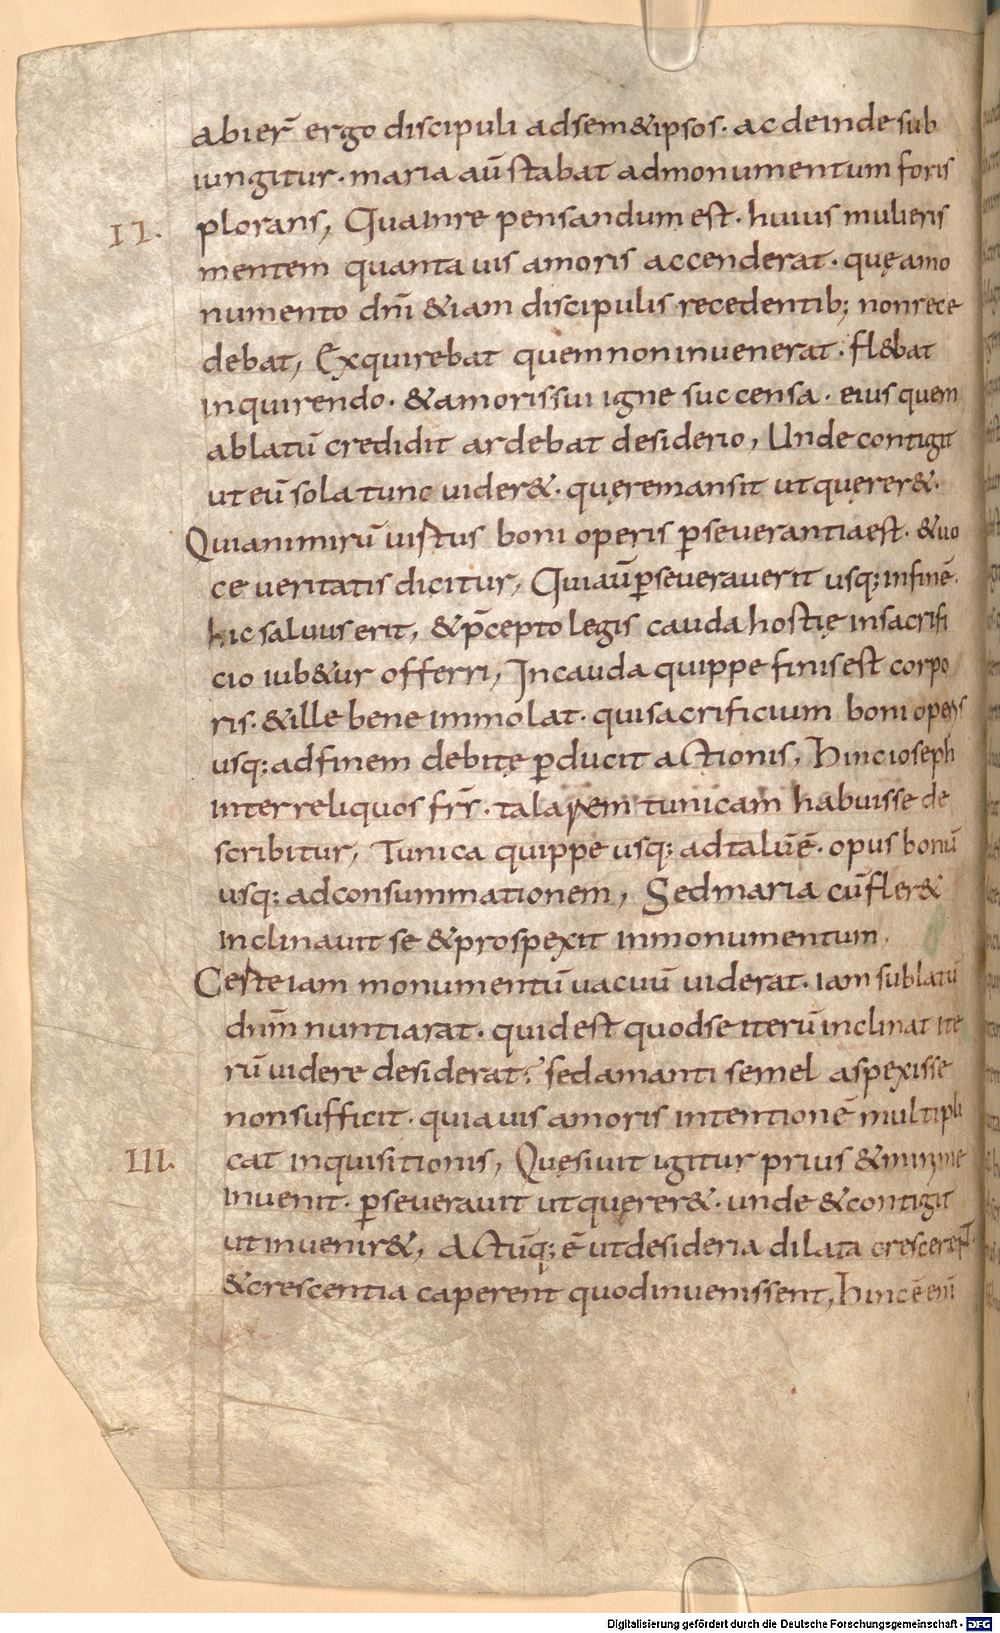 abier̄ ergo discipuli adsem&ipsos. ac deinde sub
iungitur. maria aū stabat admonumentum foris
II. plorans, Quainre pensandum est. huius mulieris
mentem quanta uis amoris accenderat. quę amo
numento dn̄i &iam discipulis recedentib; nonrece
debat, Exquirebat quem non inuenerat. fl&bat
inquirendo. &amoris sui igne succensa. eius quem
ablatū credidit ardebat desiderio, Unde contigit
ut eū sola tunc uider&. quę remansit ut quęrer&.
Quia nimirū uistus boni operis p̱seuerantia est. &uo
ce ueritatis dicitur, Quiaūp̱seuerauerit usq; infinē.
hic saluus erit, &p̄cepto legis cauda hostię insacrifi
cio iub&ur offerri, Incauda quippe finis est corpo
ris. &ille bene immolat. quisacrificium boni operis
usq; adfinem debitę p̱ducit actionis, Hinc ioseph
inter reliquos frr̄. talarem tunicam habuisse de
scribitur, Tunica quippe usq; ad talū ē. opus bonū
usq; adconsummationem, Sed maria cū fler&
inclinauit se &prospexit inmonumentum,
Certe iam monumentū uacuū uiderat. iam sublatū
dnm̄ nuntiarat. quid est quodse iterū inclinat ite
rū uidere desiderat? sed amanti semel aspexisse
non sufficit. quia uis amoris intentionē multipli
III. cat inquisitionis, Quęsiuit igitur prius &minime
inuenit. p̱seuerauit ut quęrer&. unde &contigit
ut inuenir&, Actūq; ē ut desideria dilata crescerent
&crescentia caperent quod inuenissent, Hinc ē eni̅
Digitalisierung gefördert durch die Deutsche Forschungsgemeinschaft - DFG